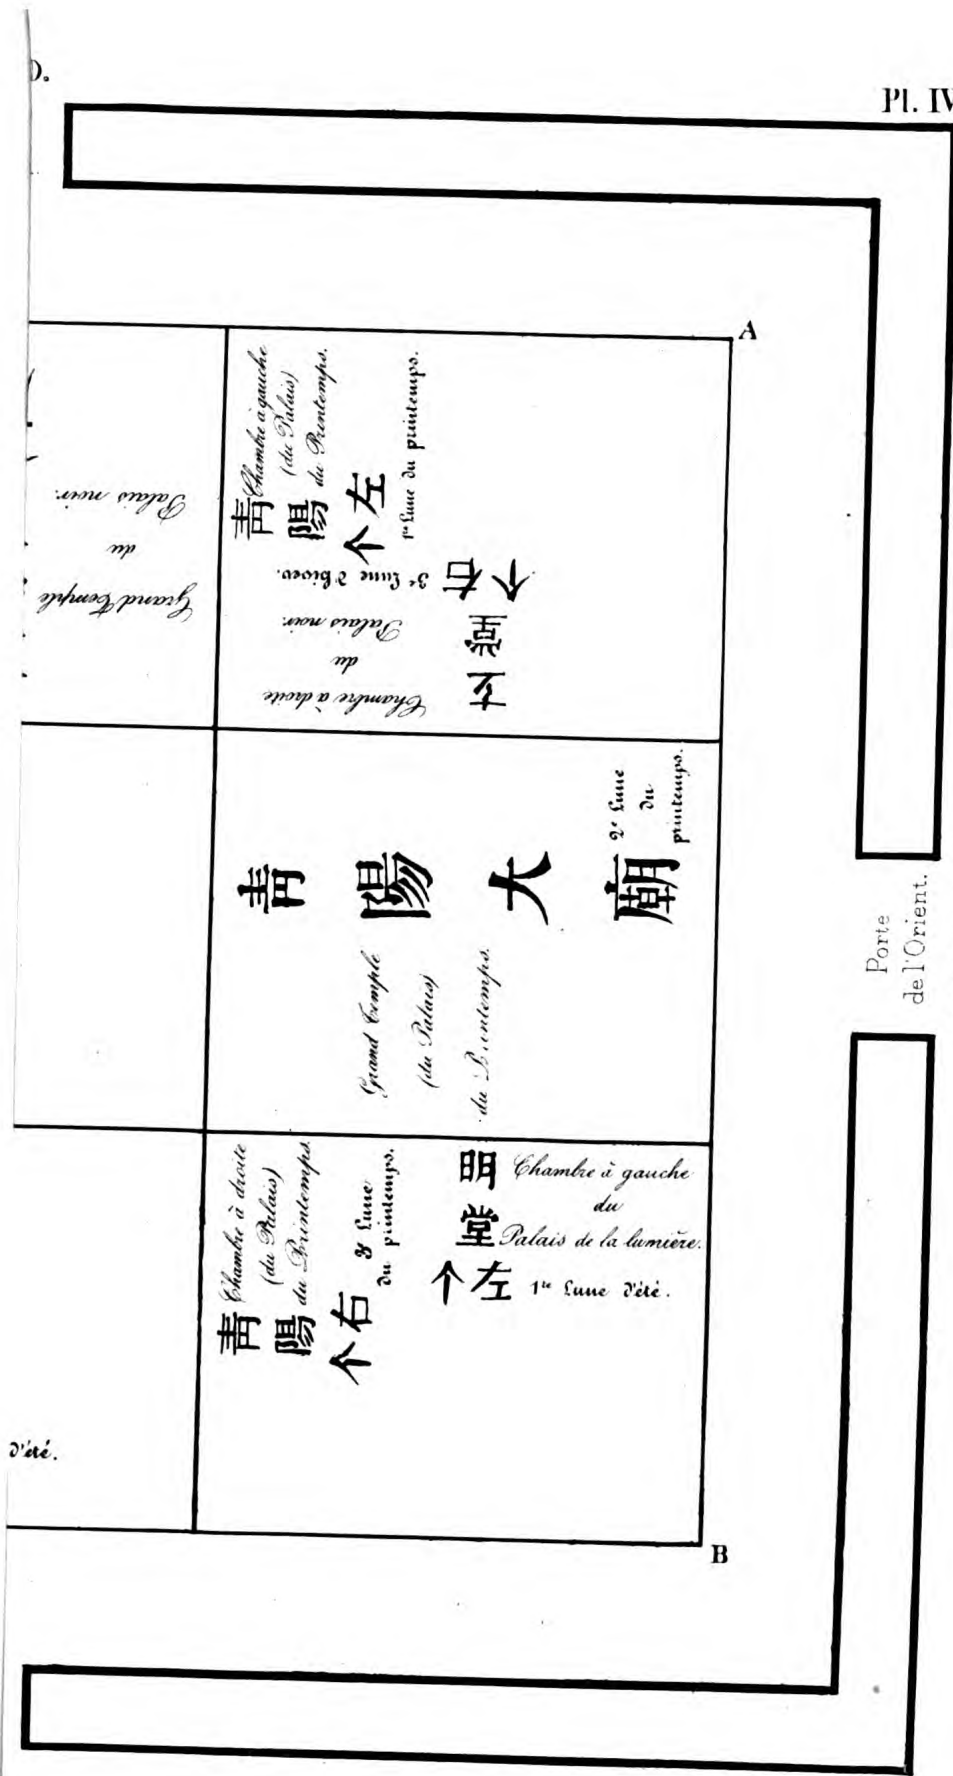 Pl. IV
A
Grand Temple
du
Palais noir.
青陽左个
Chambre à gauche
(du Palais)
du Printemps.
1re Lune du printemps.
玄堂右个
Chambre à droite
du
Palais noir.
3e Lune d'hiver.
青陽大廟
2e Lune
du
printemps.
Grand Temple
(du Palais)
du Printemps.
Porte
de l'Orient.
青陽右个
Chambre à droite
(du Palais)
du Printemps.
3e Lune
du printemps.
明堂左个
Chambre à gauche
du
Palais de la lumière.
1re Lune d'été.
d'été.
B